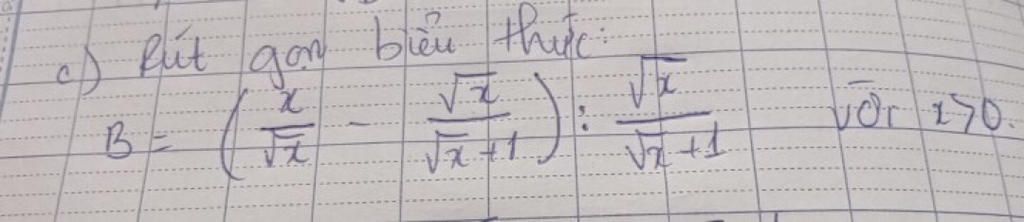 c) Rút gọn biểu thức:
B = (x/√x - √x/(√x+1)) : √x/(√x+1) với x>0.